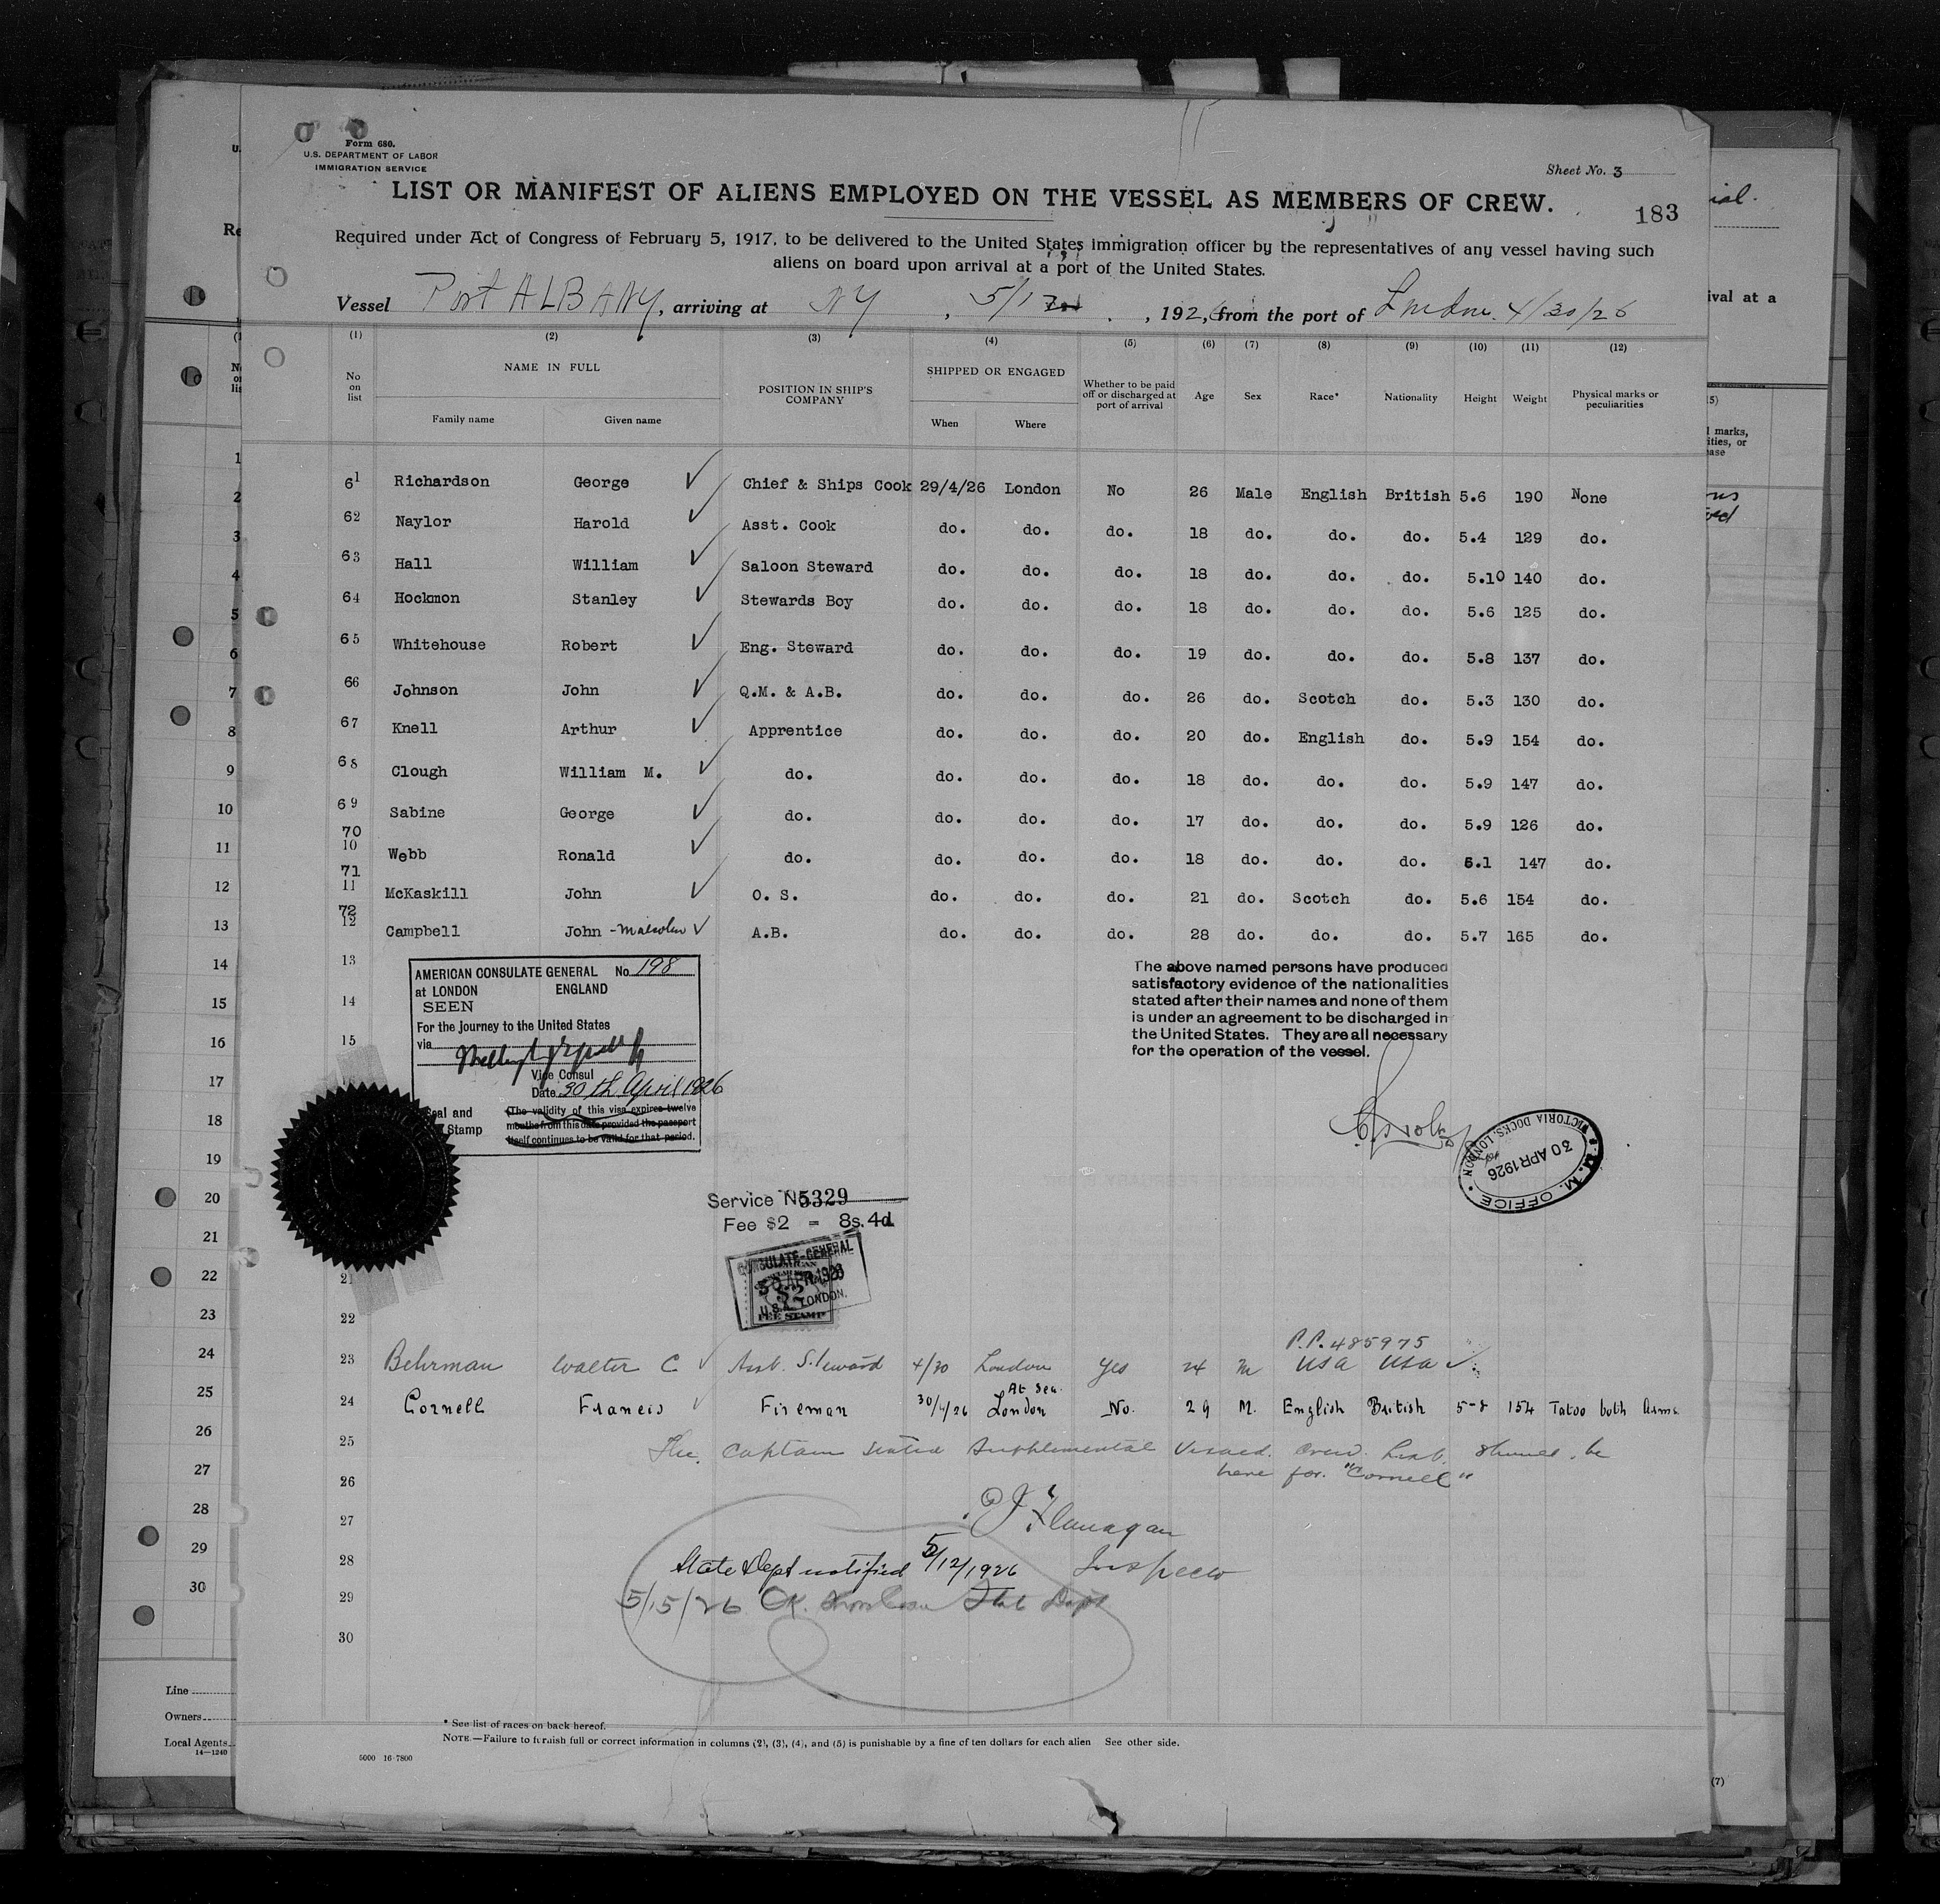 Form 680.
U.S. DEPARTMENT OF LABOR
IMMIGRATION SERVICE
Sheet No. 3
LIST OR MANIFEST OF ALIENS EMPLOYED ON THE VESSEL AS MEMBERS OF CREW.
183
Required under Act of Congress of February 5, 1917, to be delivered to the United States immigration officer by the representatives of any vessel having such
aliens on board upon arrival at a port of the United States.
Vessel Port ALBANY, arriving at NY, 5/1, 1926, from the port of London. 4/30/26
(1) (2) (3) (4) (5) (6) (7) (8) (9) (10) (11) (12)
No on list NAME IN FULL Family name Given name POSITION IN SHIP'S COMPANY SHIPPED OR ENGAGED When Where Whether to be paid off or discharged at port of arrival Age Sex Race* Nationality Height Weight Physical marks or peculiarities
61 Richardson George Chief & Ships Cook 29/4/26 London No 26 Male English British 5.6 190 None
62 Naylor Harold Asst. Cook do. do. do. 18 do. do. do. 5.4 129 do.
63 Hall William Saloon Steward do. do. do. 18 do. do. do. 5.10 140 do.
64 Hockmon Stanley Stewards Boy do. do. do. 18 do. do. do. 5.6 125 do.
65 Whitehouse Robert Eng. Steward do. do. do. 19 do. do. do. 5.8 137 do.
66 Johnson John Q.M. & A.B. do. do. do. 26 do. Scotch do. 5.3 130 do.
67 Knell Arthur Apprentice do. do. do. 20 do. English do. 5.9 154 do.
68 Clough William M. do. do. do. do. 18 do. do. do. 5.9 147 do.
69 Sabine George do. do. do. do. 17 do. do. do. 5.9 126 do.
70 10 Webb Ronald do. do. do. do. 18 do. do. do. 5.1 147 do.
71 11 McKaskill John O. S. do. do. do. 21 do. Scotch do. 5.6 154 do.
72 12 Campbell John - Malcolm A.B. do. do. do. 28 do. do. do. 5.7 165 do.
13
14
15
AMERICAN CONSULATE GENERAL No. 198
at LONDON ENGLAND
SEEN
For the Journey to the United States
via
Vice Consul
Date 30th April 1926
Seal and
Stamp
(The validity of this visa expires twelve
months from this date provided the passport
itself continues to be valid for that period.
The above named persons have produced
satisfactory evidence of the nationalities
stated after their names and none of them
is under an agreement to be discharged in
the United States. They are all necessary
for the operation of the vessel.
M. M. OFFICE
30 APR 1926
VICTORIA DOCKS, LONDON
Service No 5329
Fee $2 = 8s. 4d.
CONSULATE-GENERAL
30 APR 1926
$2
U.S.A. LONDON.
FEE STAMP
21
22
P.P. 485975
23 Behrman Walter C. Asst. Steward 4/30 London Yes 24 M USA USA
At Sea.
24 Cornell Francis Fireman 30/4/26 London No. 29 M. English British 5-8 154 Tatoo both Arms
25 The Captain stated Supplemental Visaed Crew List should be
here for "Cornell"
26
27 P J Flanagan
28 State Dept notified 5/12/1926 Inspector
29 5/15/26 OK. State Dept
30
* See list of races on back hereof.
NOTE.—Failure to furnish full or correct information in columns (2), (3), (4), and (5) is punishable by a fine of ten dollars for each alien See other side.
5000 16-7800
Line
Owners
Local Agents
14—1240
1
2
3
4
5
6
7
8
9
10
11
12
13
14
15
16
17
18
19
20
21
22
23
24
25
26
27
28
29
30
ival at a
marks,
ities, or
ease
(7)